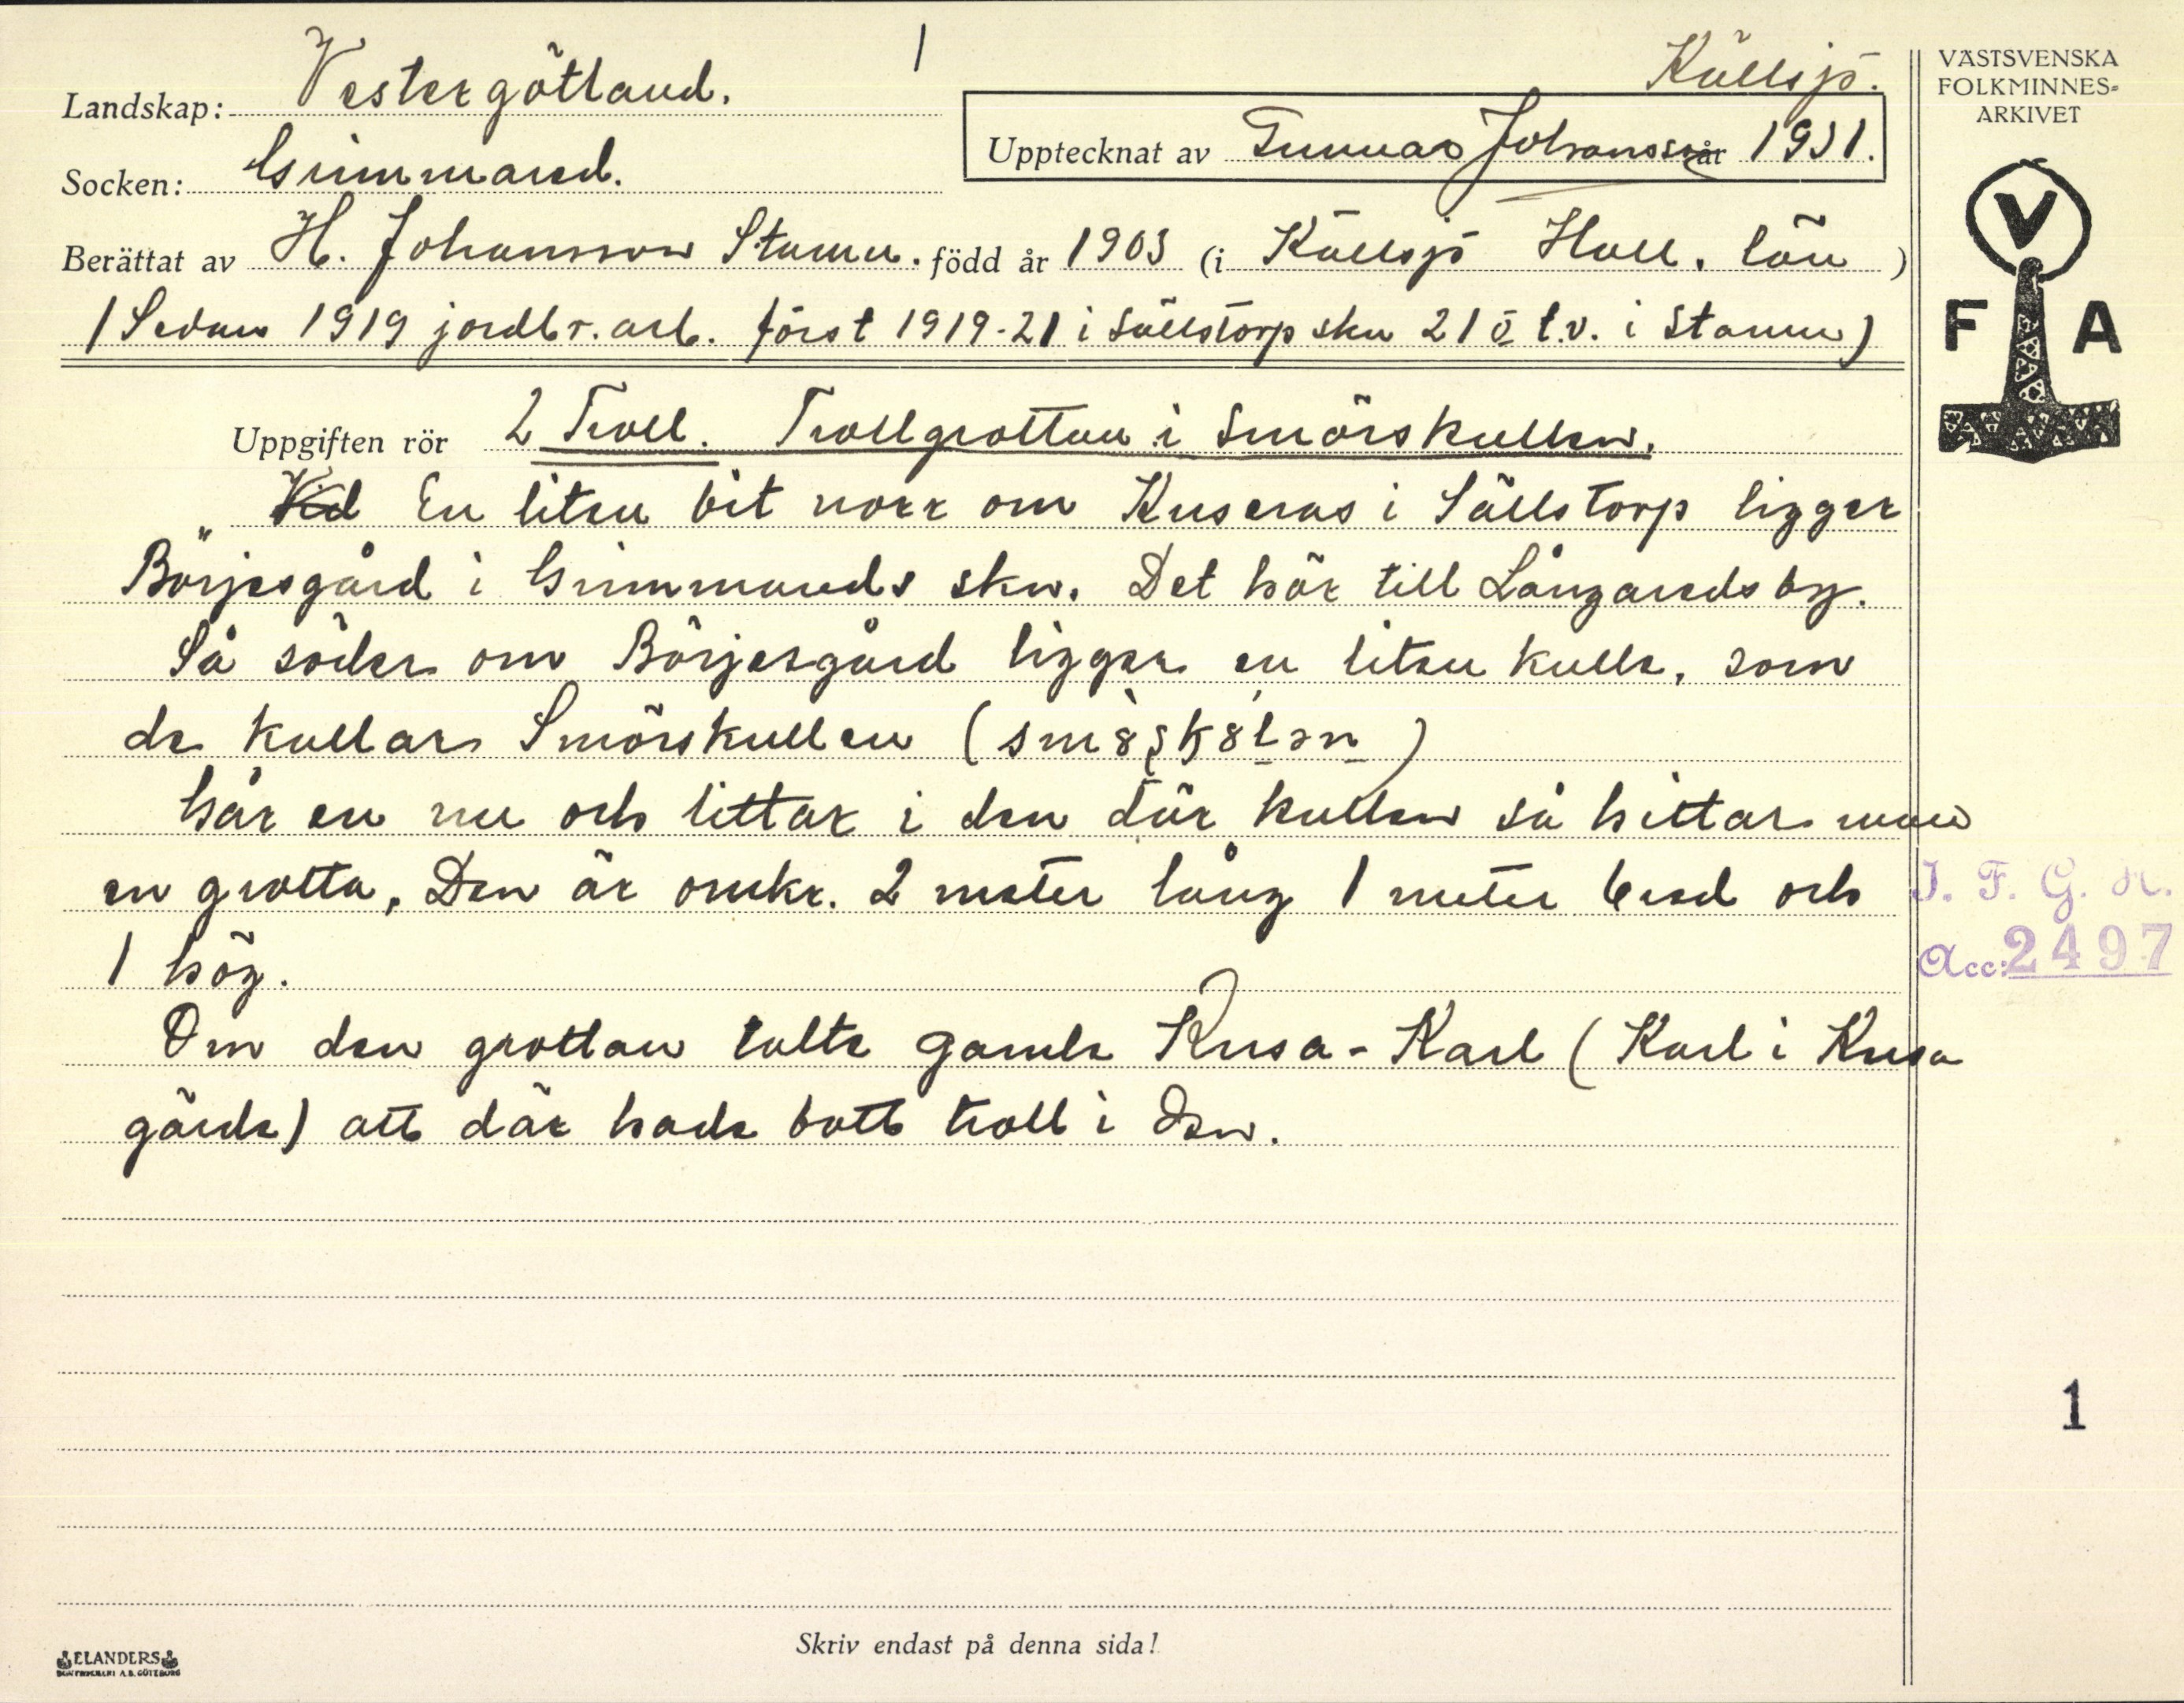 1
Källsjö.
VÄSTSVENSKA
FOLKMINNES-
ARKIVET
Landskap: Vestergötland.
Upptecknat av Gunnar Johansson år 1931.
Socken: Grimmared.
Berättat av H. Johansson Stamn. född år 1903 (i Källsjö Hall. län)
(Sedan 1919 jordbr. arb. först 1919-21 i Sällstorp skn 21 ö t.v. i Stamn)
V
F A
Uppgiften rör 2 Troll. Trollgrottan i Smörskullen.
" Vid En liten bit norr om Kuseras i Sällstorp ligger
Börjesgård i Grimmareds skn. Det hör till Långareds by.
Så söder om Börjesgård ligger en liten kulle, som
de kallar Smörskullen
Går en nu och littar i den där kullen så hittar man
en grotta, Den är omkr. 2 meter lång 1 meter bred och
1 hög.
I. F. G. H.
Acc: 2497
Om den grottan talte gamle Kusa-Karl (Karl i Kusa
gärde) att där hade bott troll i den.
1
Skriv endast på denna sida!
ELANDERS
BOKTRYCKERI A.B. GÖTEBORG